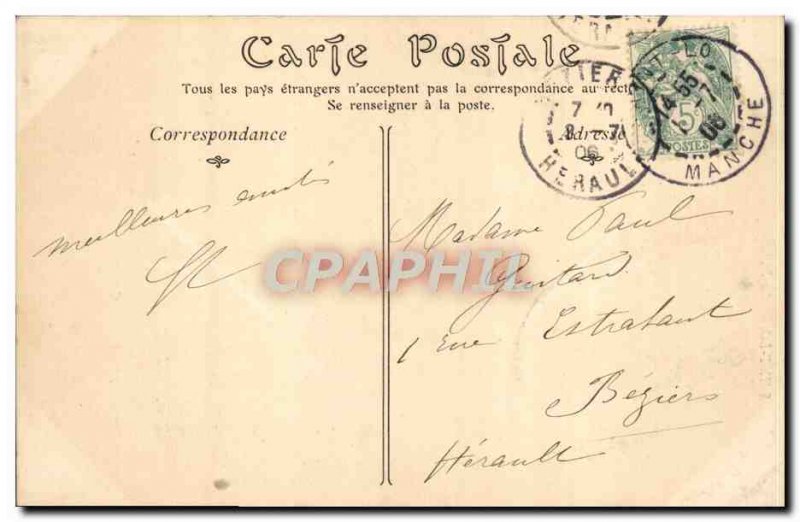 Carte Postale
Tous les pays étrangers n'acceptent pas la correspondance au recto
Se renseigner à la poste.
Correspondance
Adresse
meilleures amitiés
Madame Paul
Guitard
1 Rue Estrabaut
Béziers
Hérault
CPAPHIL
5c
POSTES
14-55
06
MANCHE
8 -7
06
HERAULT